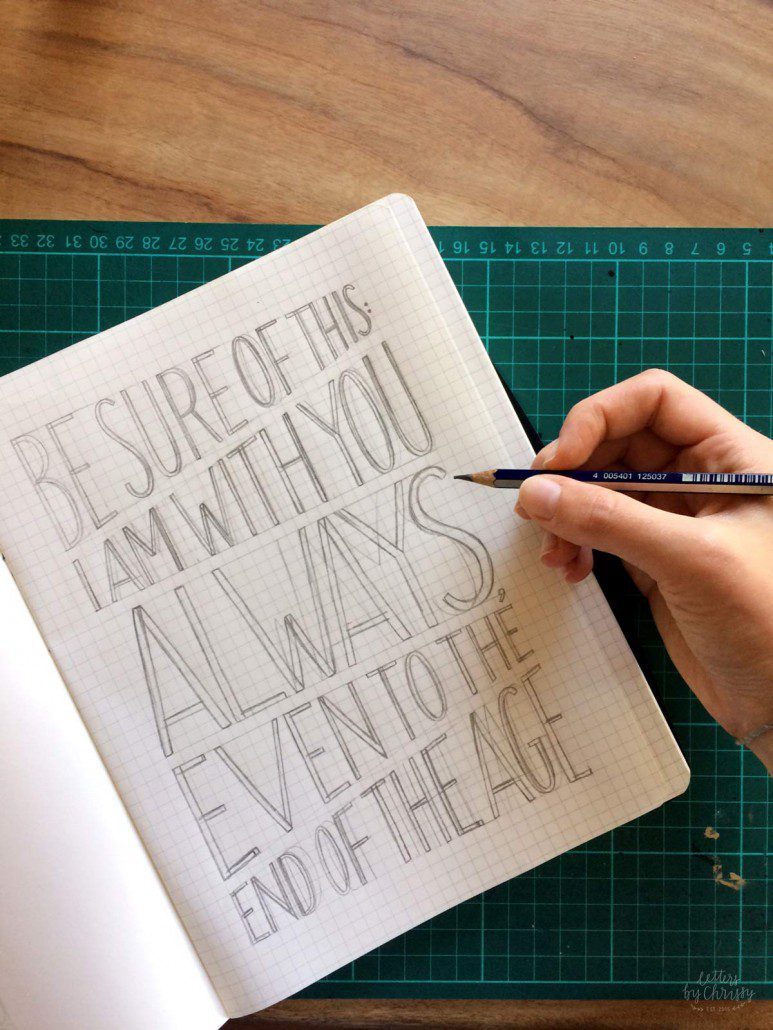 33 32 31 30 29 28 27 26 25 24 23
15 14 13 12 11 10 9 8 7 6 5 4
BE SURE OF THIS:
I AM WITH YOU
ALWAYS,
EVEN TO THE
END OF THE AGE
4 005401 125037
letters
by Chrissy
EST 2015